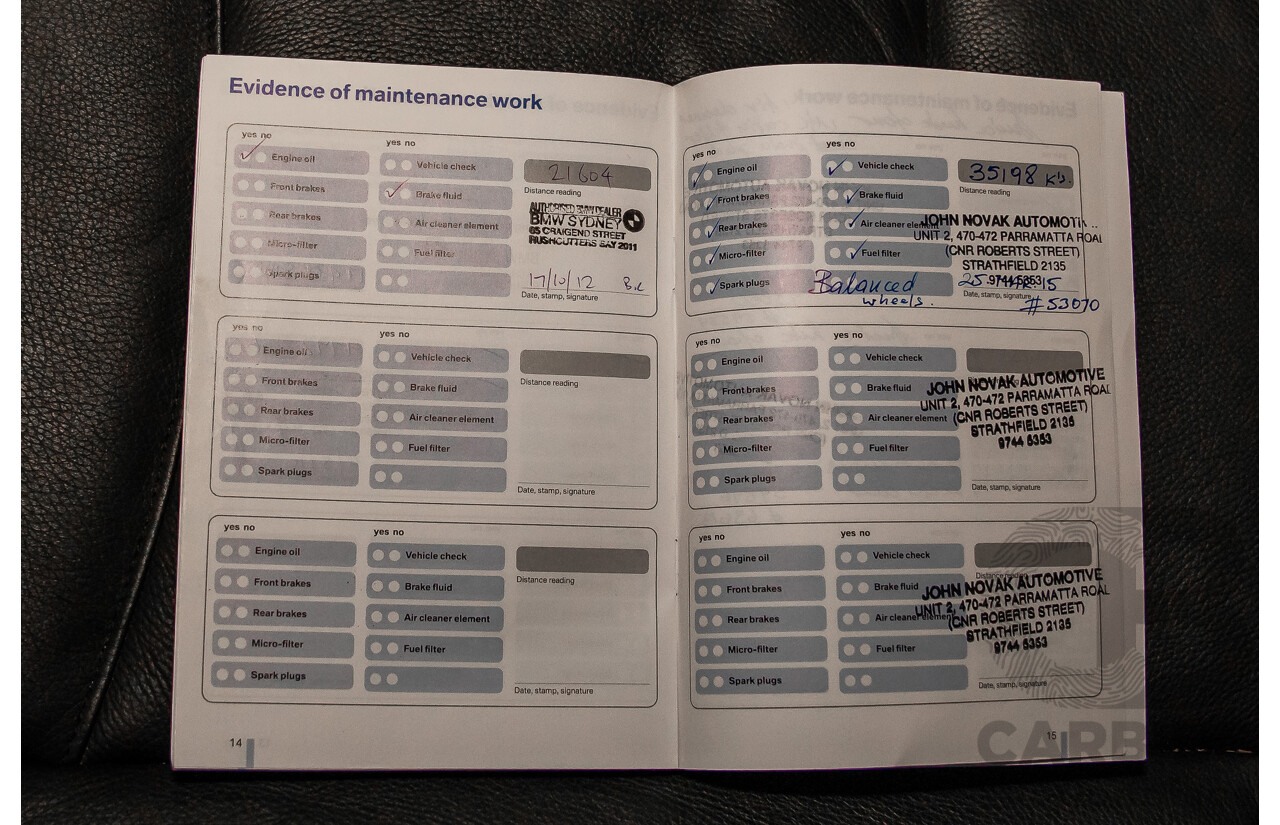 Evidence of maintenance work
yes no
yes no
Engine oil
Vehicle check
21604
Distance reading
Front brakes
Brake fluid
AUTHORISED BMW DEALER
BMW SYDNEY
65 CRAIGEND STREET
RUSHCUTTERS BAY 2011
Rear brakes
Air cleaner element
Micro-filter
Fuel filter
Spark plugs
17/10/12
Date, stamp, signature
yes no
yes no
Engine oil
Vehicle check
Distance reading
Front brakes
Brake fluid
Rear brakes
Air cleaner element
Micro-filter
Fuel filter
Spark plugs
Date, stamp, signature
yes no
yes no
Engine oil
Vehicle check
Distance reading
Front brakes
Brake fluid
Rear brakes
Air cleaner element
Micro-filter
Fuel filter
Spark plugs
Date, stamp, signature
14
yes no
yes no
Engine oil
Vehicle check
35198
Distance reading
Front brakes
Brake fluid
Rear brakes
Air cleaner element
JOHN NOVAK AUTOMOTIV
UNIT 2, 470-472 PARRAMATTA ROAD
(CNR ROBERTS STREET)
STRATHFIELD 2135
9744 5353
Micro-filter
Fuel filter
Spark plugs
Balanced
wheels.
Date, stamp, signature
#53070
yes no
yes no
Engine oil
Vehicle check
Front brakes
Brake fluid
Rear brakes
Air cleaner element
JOHN NOVAK AUTOMOTIVE
UNIT 2, 470-472 PARRAMATTA ROAD
(CNR ROBERTS STREET)
STRATHFIELD 2135
9744 5353
Micro-filter
Fuel filter
Spark plugs
Date, stamp, signature
yes no
yes no
Engine oil
Vehicle check
Distance reading
Front brakes
Brake fluid
Rear brakes
Air cleaner element
JOHN NOVAK AUTOMOTIVE
UNIT 2, 470-472 PARRAMATTA ROAD
(CNR ROBERTS STREET)
STRATHFIELD 2135
9744 5353
Micro-filter
Fuel filter
Spark plugs
Date, stamp, signature
15
CARB